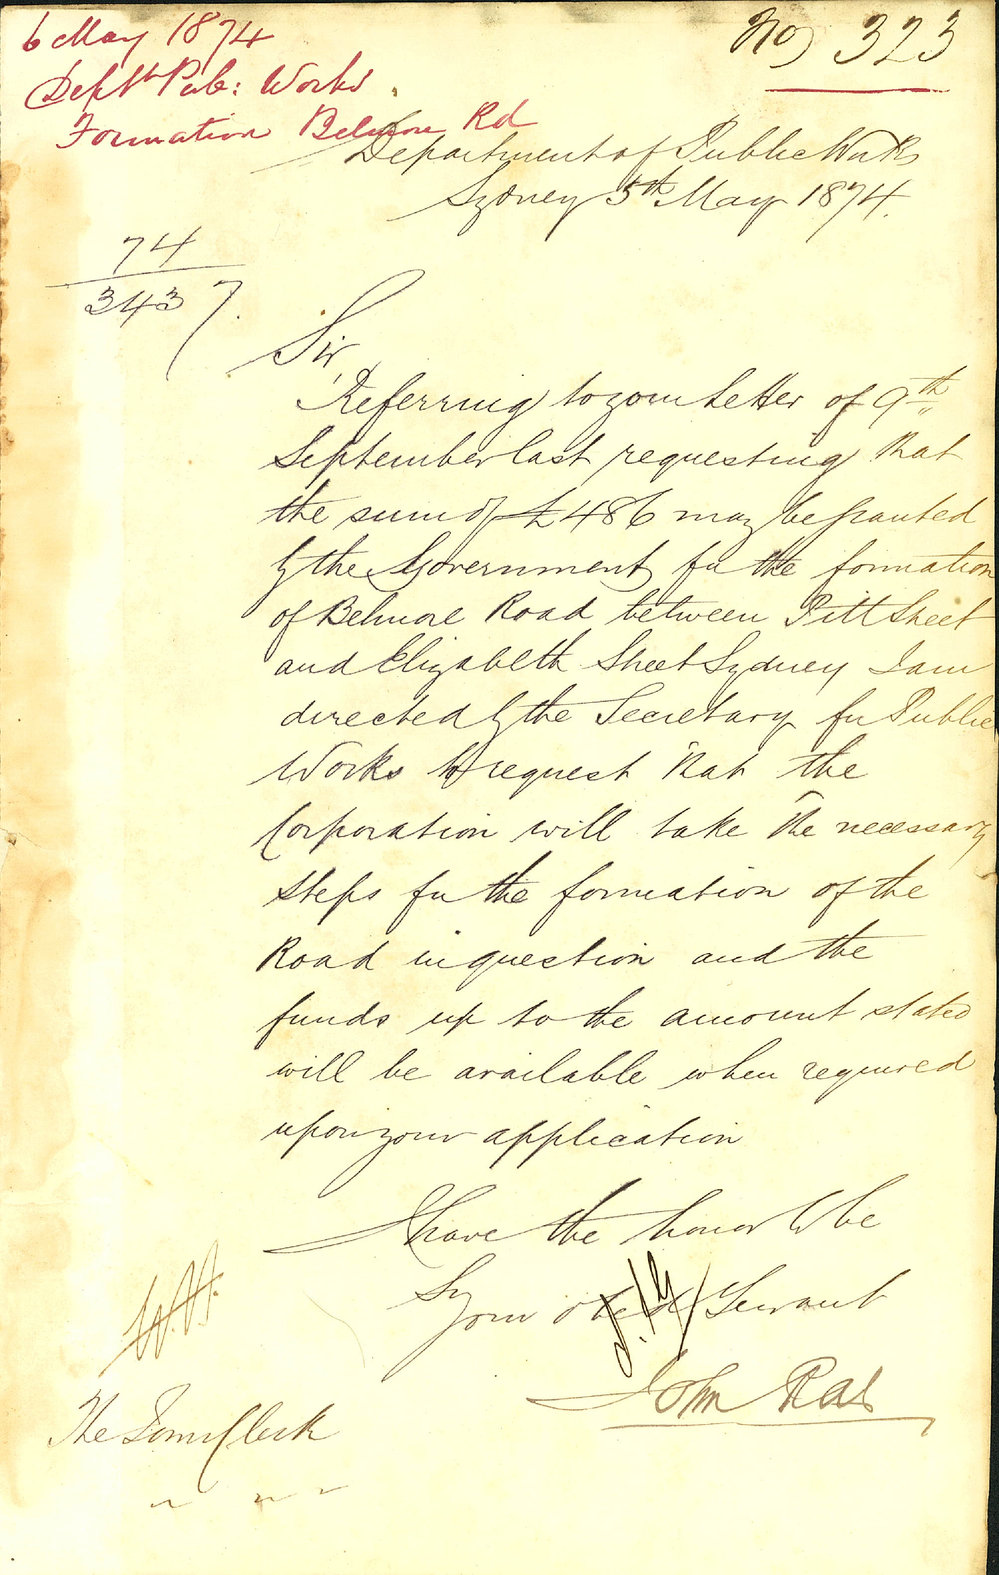 6 May 1874
No 323
Deptt Pub: Works.
Formation Belmore Rd
Department of Public Works
Sydney 5th May 1874.
74
3437.
Sir,
Referring to your letter of 9th
September last requesting that
the sum of £486 may be granted
by the Government for the formation
of Belmore Road between Pitt Street
and Elizabeth Street Sydney I am
directed by the Secretary for Public
Works to request that the
Corporation will take the necessary
steps for the formation of the
Road in question and the
funds up to the amount stated
will be available when required
upon your application
I have the honor to be
Sir
Your obedt Servant
John Rae
The Town Clerk